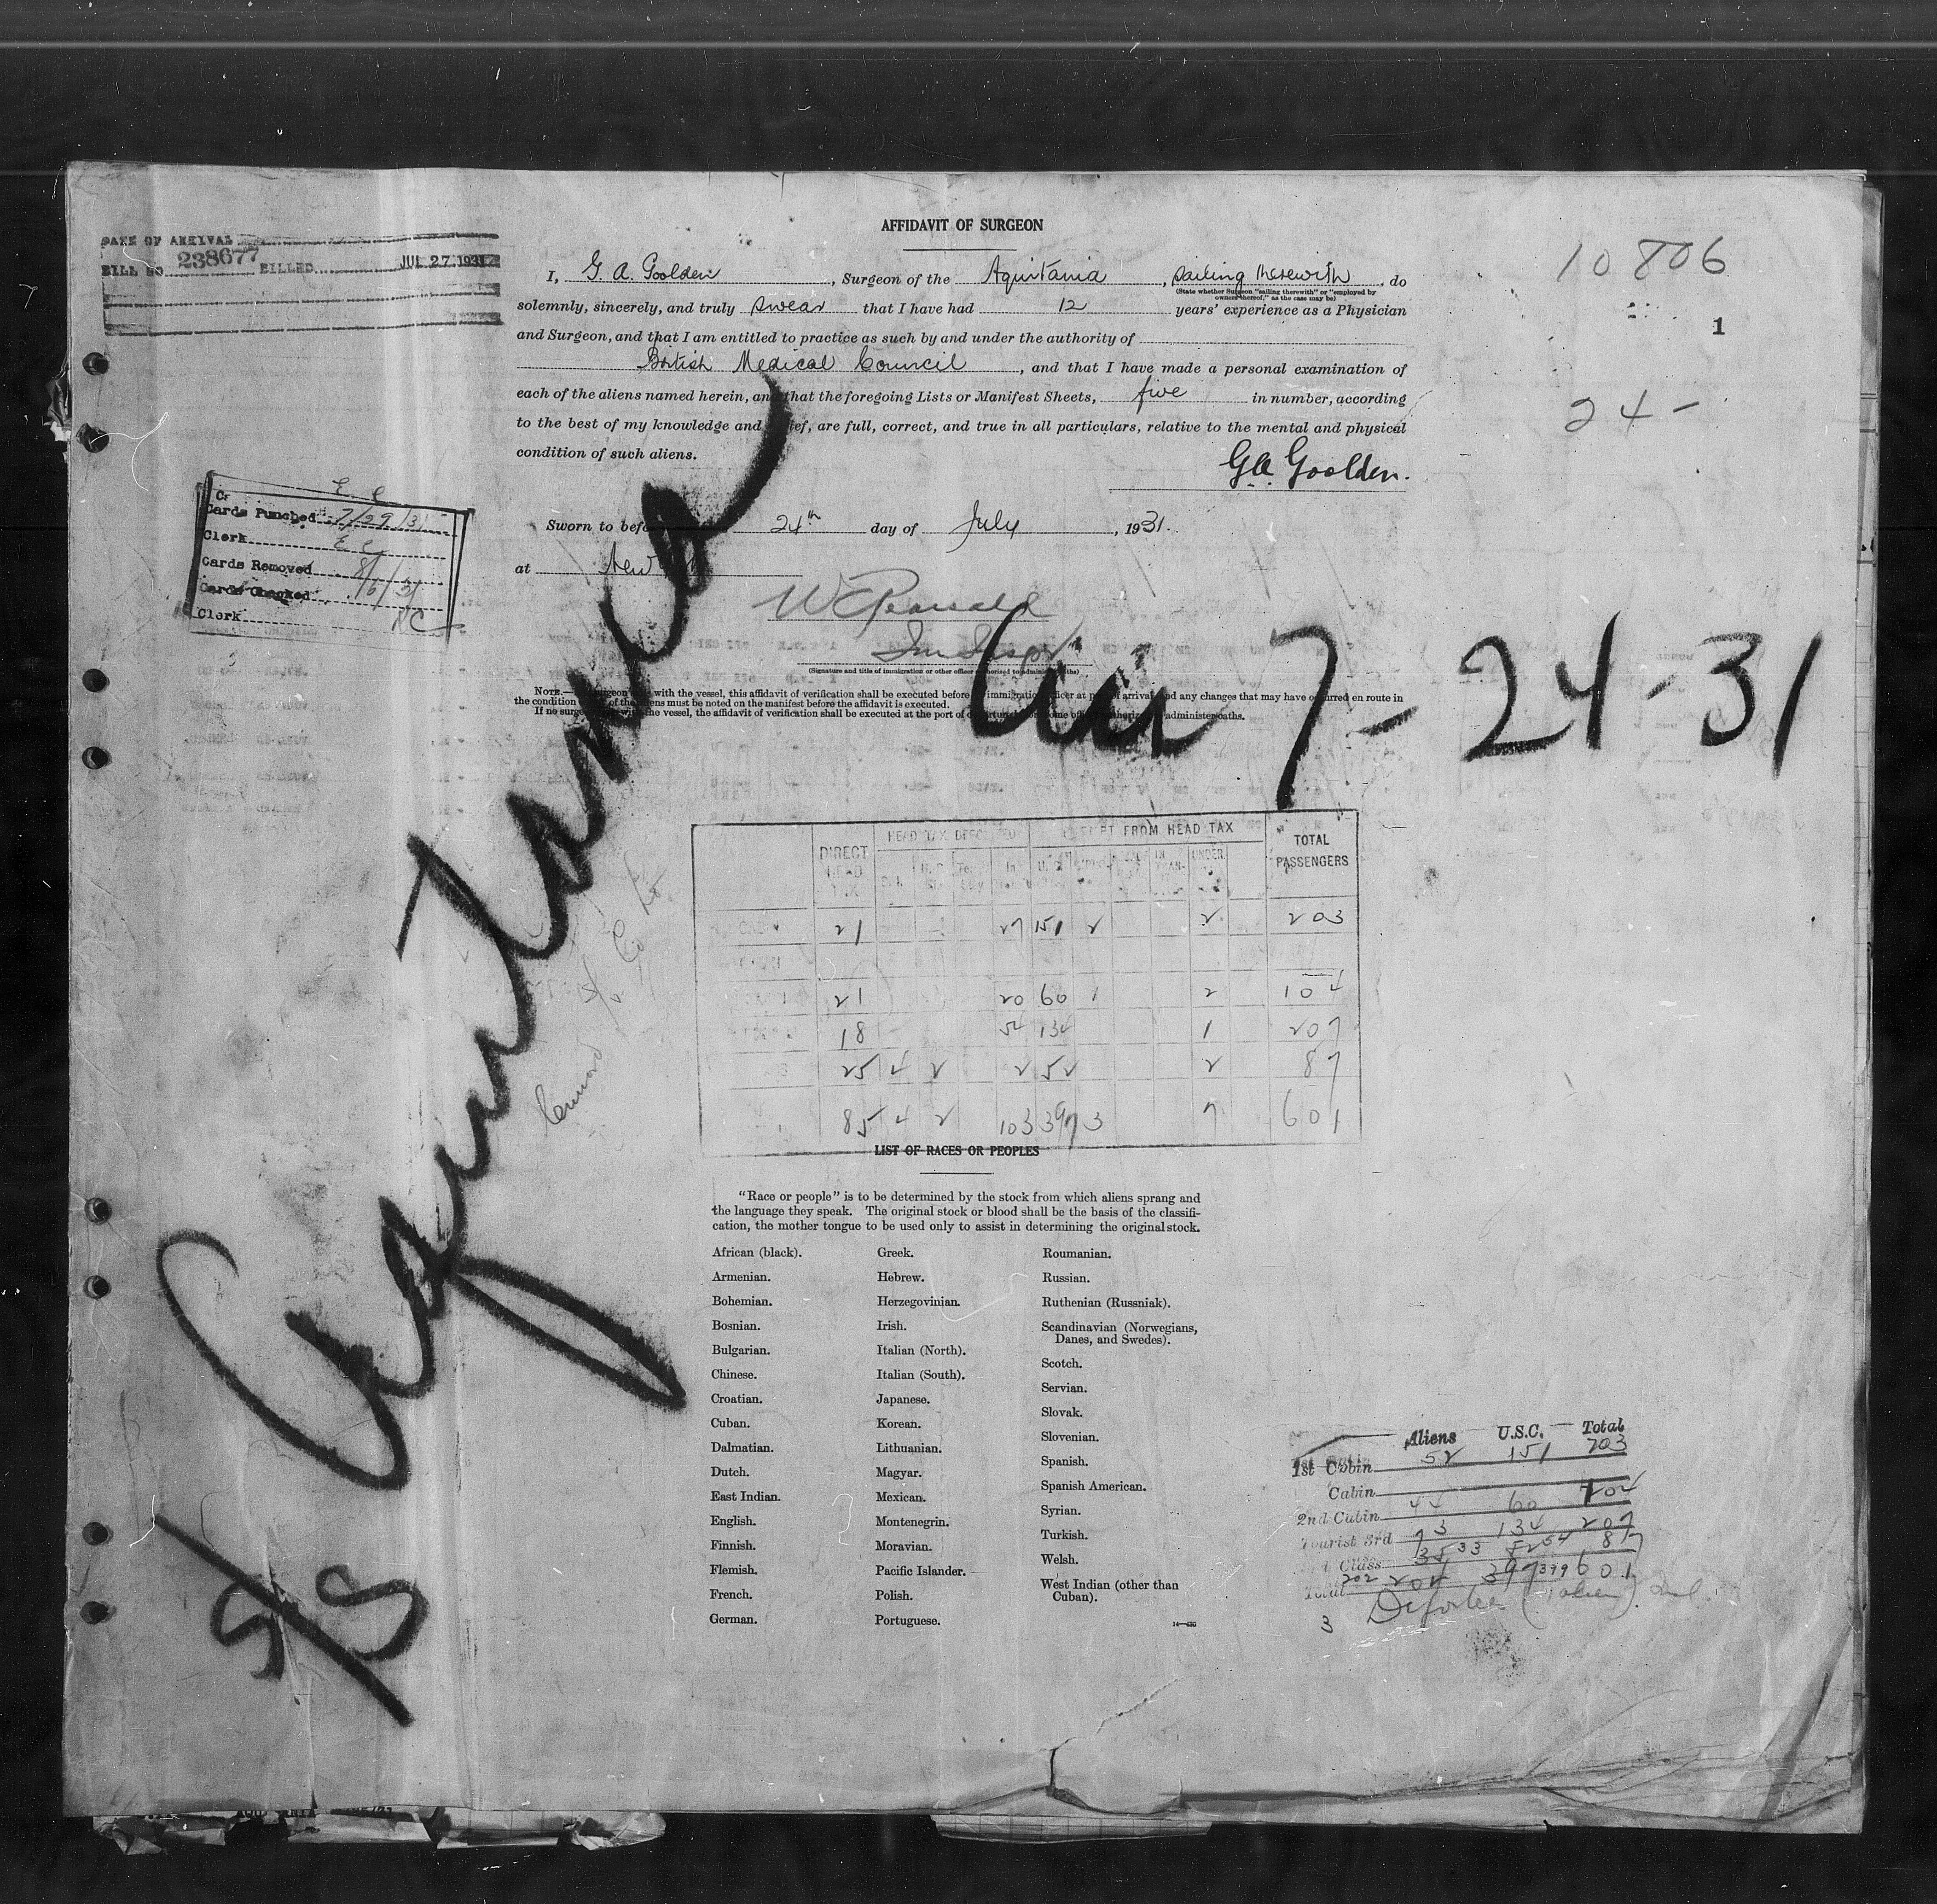 AFFIDAVIT OF SURGEON
DATE OF ARRIVAL
BILL NO. 238677 BILLED JUL 27 1931
10806
1
24-
I, G. A. Goolden, Surgeon of the Aquitania, sailing therewith, do
(State whether Surgeon "sailing therewith" or "employed by
owners thereof," as the case may be)
solemnly, sincerely, and truly swear that I have had 12 years' experience as a Physician
and Surgeon, and that I am entitled to practice as such by and under the authority of
British Medical Council, and that I have made a personal examination of
each of the aliens named herein, and that the foregoing Lists or Manifest Sheets, five in number, according
to the best of my knowledge and belief, are full, correct, and true in all particulars, relative to the mental and physical
condition of such aliens.
G A Goolden.
Cards Punched 7/29/31
Clerk E C
Cards Removed
Cards Checked 8/6/31
Clerk
Sworn to before 24th day of July, 1931.
at New
(Signature and title of immigration or other officer authorized to administer oaths)
NOTE.— surgeon with the vessel, this affidavit of verification shall be executed before immigration officer at port of arrival, and any changes that may have occurred en route in
the condition of the aliens must be noted on the manifest before the affidavit is executed.
If no surgeon the vessel, the affidavit of verification shall be executed at the port of departure some officer authorized administer oaths.
S/S Aquitania
Arr 7-24-31
HEAD TAX EXEMPT FROM HEAD TAX
DIRECT HEAD TAX UNDER TOTAL PASSENGERS
21 27 151 2 2 203
21 20 60 1 2 104
18 54 134 1 207
25 4 2 2 52 2 87
85 4 2 103 397 3 7 601
LIST OF RACES OR PEOPLES
"Race or people" is to be determined by the stock from which aliens sprang and
the language they speak. The original stock or blood shall be the basis of the classifi-
cation, the mother tongue to be used only to assist in determining the original stock.
African (black).
Armenian.
Bohemian.
Bosnian.
Bulgarian.
Chinese.
Croatian.
Cuban.
Dalmatian.
Dutch.
East Indian.
English.
Finnish.
Flemish.
French.
German.
Greek.
Hebrew.
Herzegovinian.
Irish.
Italian (North).
Italian (South).
Japanese.
Korean.
Lithuanian.
Magyar.
Mexican.
Montenegrin.
Moravian.
Pacific Islander.
Polish.
Portuguese.
Roumanian.
Russian.
Ruthenian (Russniak).
Scandinavian (Norwegians,
Danes, and Swedes).
Scotch.
Servian.
Slovak.
Slovenian.
Spanish.
Spanish American.
Syrian.
Turkish.
Welsh.
West Indian (other than
Cuban).
Aliens U.S.C. Total
1st Cabin 52 151 203
Cabin
2nd Cabin 44 60 104
Tourist 3rd 73 134 207
Class 35 33 52 54 87
Total 202 204 397 399 601
3